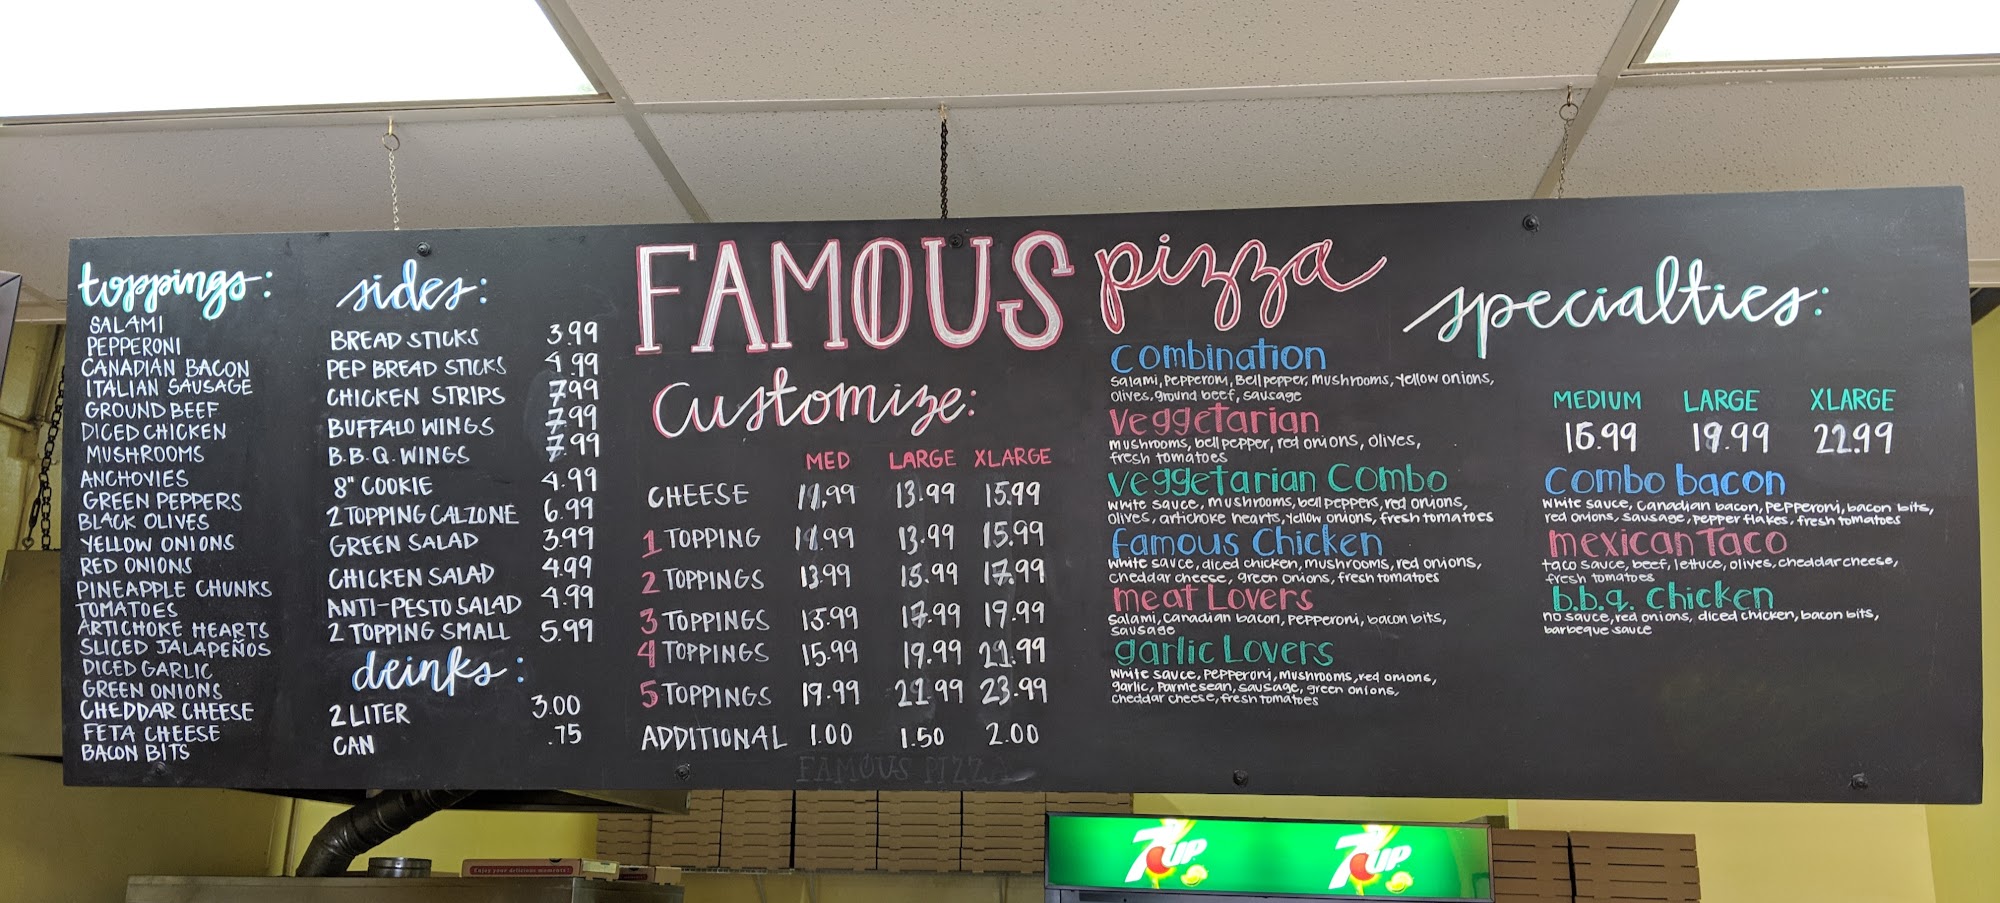 toppings:
SALAMI
PEPPERONI
CANADIAN BACON
ITALIAN SAUSAGE
GROUND BEEF
DICED CHICKEN
MUSHROOMS
ANCHOVIES
GREEN PEPPERS
BLACK OLIVES
YELLOW ONIONS
RED ONIONS
PINEAPPLE CHUNKS
TOMATOES
ARTICHOKE HEARTS
SLICED JALAPEÑOS
DICED GARLIC
GREEN ONIONS
CHEDDAR CHEESE
FETA CHEESE
BACON BITS
sides:
BREAD STICKS 3.99
PEP BREAD STICKS 4.99
CHICKEN STRIPS 7.99
BUFFALO WINGS 7.99
B.B.Q. WINGS 7.99
8" COOKIE 4.99
2 TOPPING CALZONE 6.99
GREEN SALAD 3.99
CHICKEN SALAD 4.99
ANTI-PESTO SALAD 4.99
2 TOPPING SMALL 5.99
drinks:
2 LITER 3.00
CAN .75
FAMOUS pizza
Customize:
MED LARGE XLARGE
CHEESE 11.99 13.99 15.99
1 TOPPING 11.99 13.99 15.99
2 TOPPINGS 13.99 15.99 17.99
3 TOPPINGS 15.99 17.99 19.99
4 TOPPINGS 15.99 19.99 21.99
5 TOPPINGS 19.99 21.99 23.99
ADDITIONAL 1.00 1.50 2.00
FAMOUS PIZZA
specialties:
Combination
Salami, Pepperoni, Bell pepper, mushrooms, yellow onions,
olives, ground beef, sausage
Veggetarian
mushrooms, bell pepper, red onions, olives,
fresh tomatoes
Veggetarian Combo
White sauce, mushrooms, bell peppers, red onions,
olives, artichoke hearts, yellow onions, fresh tomatoes
Famous Chicken
White sauce, diced chicken, mushrooms, red onions,
cheddar cheese, green onions, fresh tomatoes
meat Lovers
Salami, Canadian bacon, Pepperoni, bacon bits,
sausage
garlic Lovers
White sauce, Pepperoni, mushrooms, red onions,
garlic, Parmesean, sausage, green onions,
cheddar cheese, fresh tomatoes
MEDIUM LARGE XLARGE
15.99 19.99 22.99
Combo bacon
White sauce, Canadian bacon, Pepperoni, bacon bits,
red onions, sausage, pepper flakes, fresh tomatoes
mexican Taco
taco sauce, beef, lettuce, olives, cheddar cheese,
fresh tomatoes
b.b.q. chicken
no sauce, red onions, diced chicken, bacon bits,
barbeque sauce
Enjoy your delicious moments!
7UP
7UP